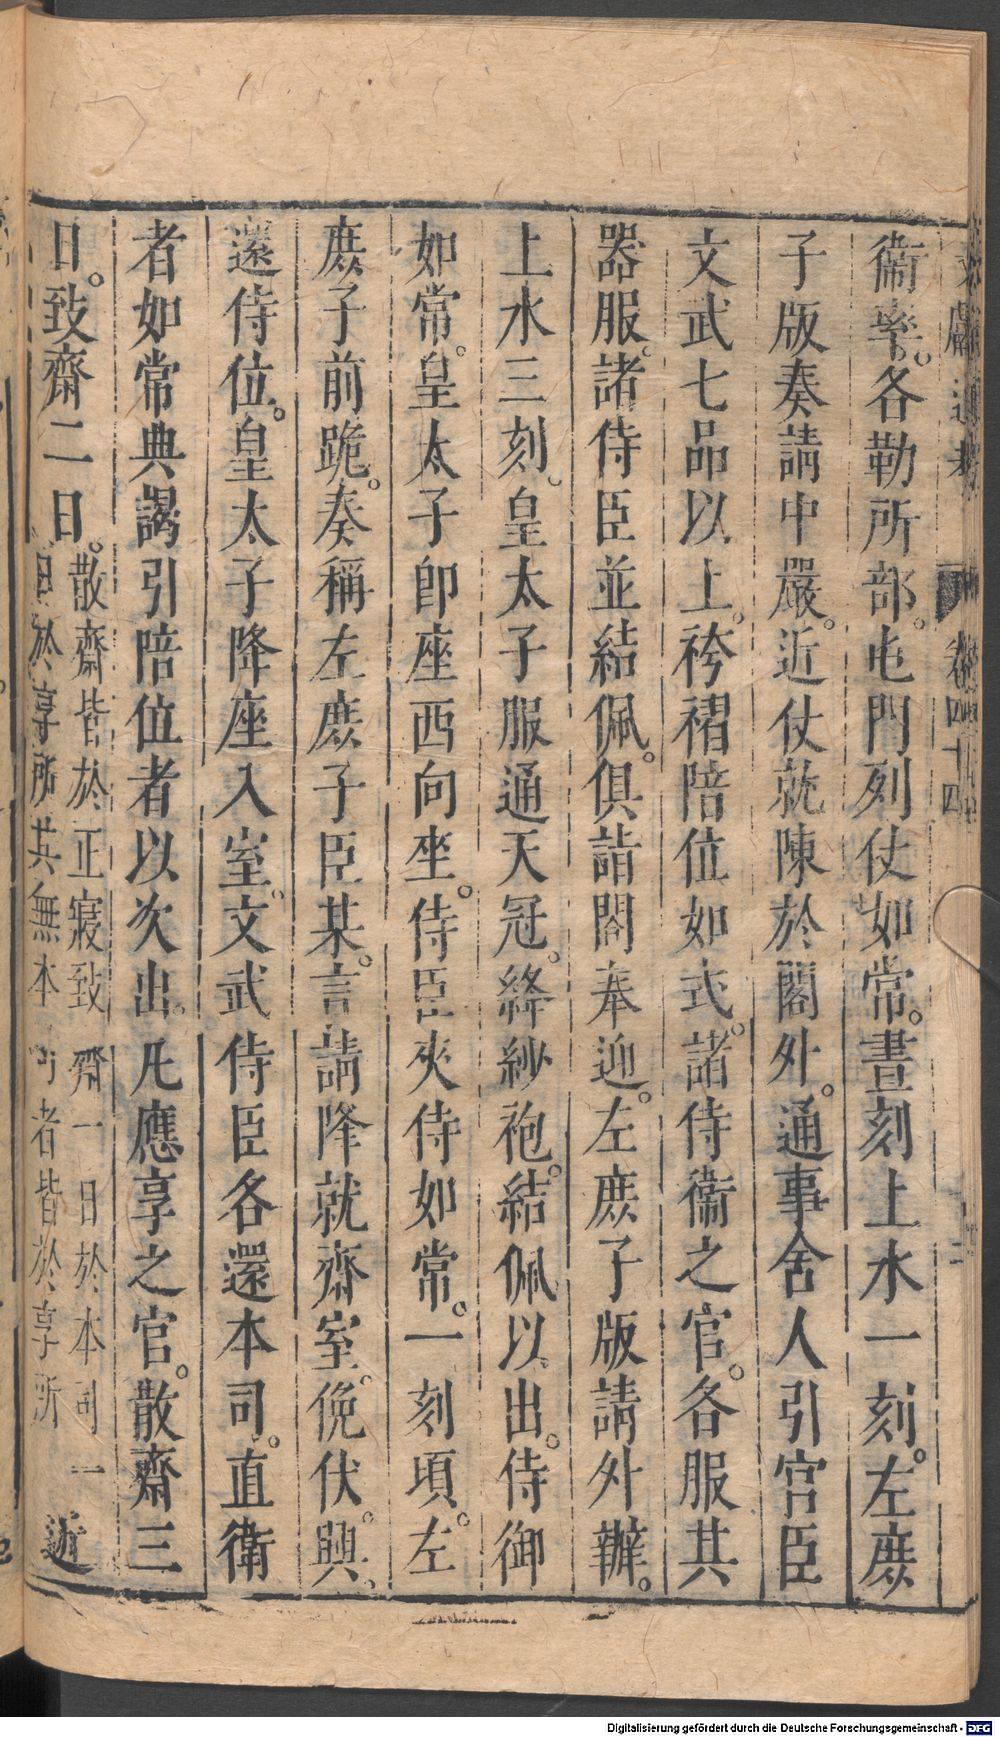 文獻通考 卷四十四 二
衞率。各勒所部。屯門列仗如常。晝刻上水一刻。左庶
子版奏請中嚴。近仗就陳於閤外。通事舍人引宮臣
文武七品以上。袴褶陪位如式。諸侍衞之官。各服其
器服。諸侍臣並結佩。俱詣閤奉迎。左庶子版請外辦。
上水三刻。皇太子服通天冠。絳紗袍。結佩以出。侍御
如常。皇太子卽座西向坐。侍臣夾侍如常。一刻頃。左
庶子前跪。奏稱左庶子臣某。言請降就齋室。俛伏。興。
還侍位。皇太子降座入室。文武侍臣各還本司。直衞
者如常典謁引陪位者以次出。凡應享之官。散齋三
日。致齋二日。
散齋皆於正寢致齋一日於本司一
日於享所其無本司者皆於享所
近
Digitalisierung gefördert durch die Deutsche Forschungsgemeinschaft - DFG